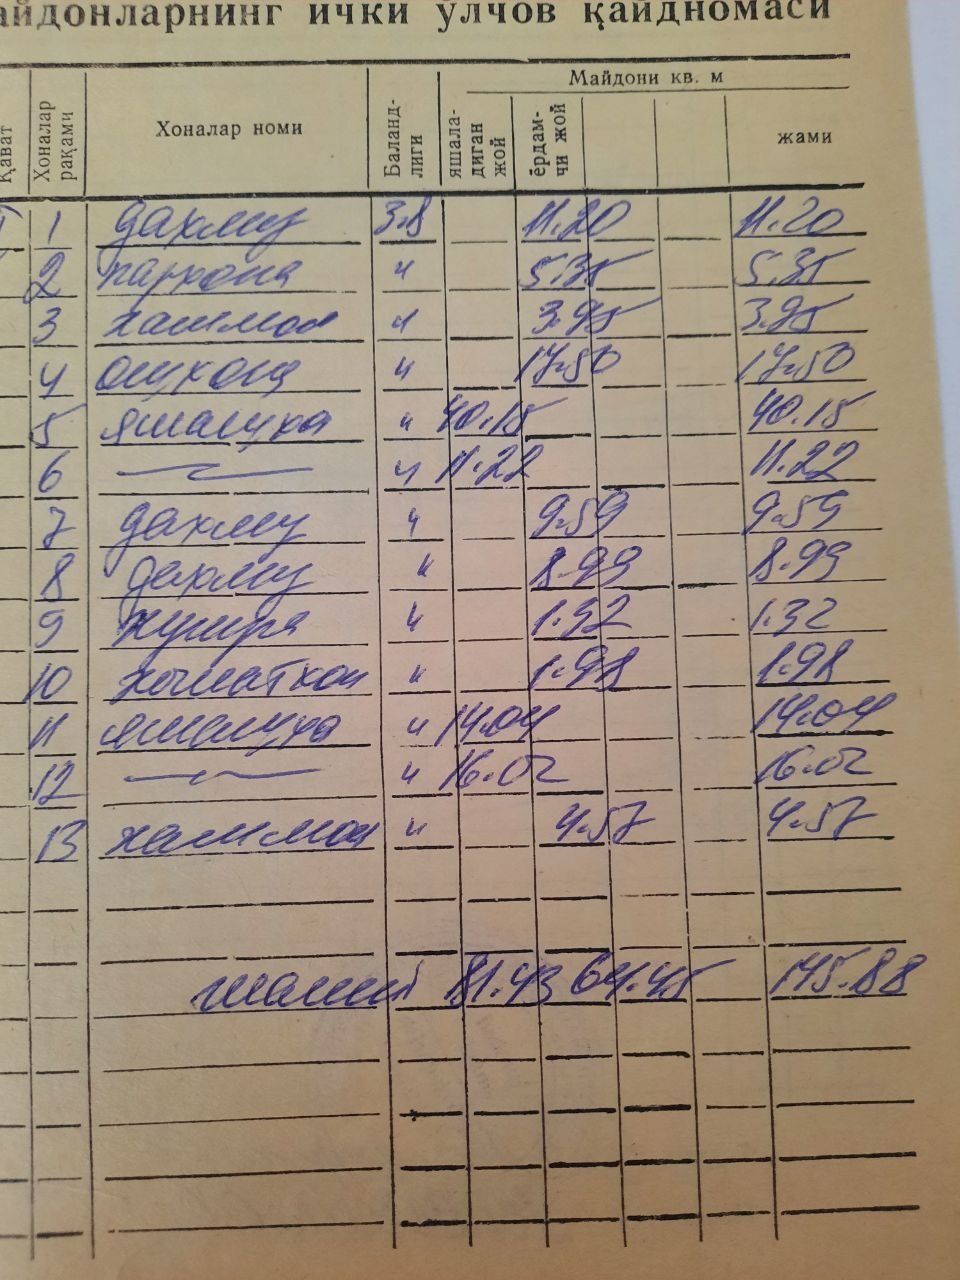 айдонларнинг ички ўлчов қайдномаси
Қават Хоналар рақами Хоналар номи Баланд-лиги Майдони кв. м
яшала-диган жой ёрдам-чи жой жами
1 дахлиз 3.8 11.20 11.20
2 пархона " 5.35 5.35
3 хаммом " 3.95 3.95
4 ошхона " 17.50 17.50
5 яшаш уха " 40.15 40.15
6 " 11.22 11.22
7 дахлиз " 9.59 9.59
8 дахлиз " 8.99 8.99
9 " 1.32 1.32
10 " 1.98 1.98
11 яшаш уха " 14.04 14.04
12 " 16.02 16.02
13 хаммом " 4.57 4.57
81.43 64.45 145.88